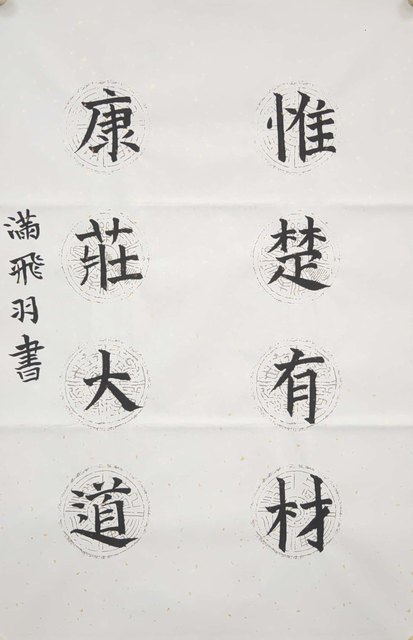 惟楚有材
康莊大道
滿飛羽書